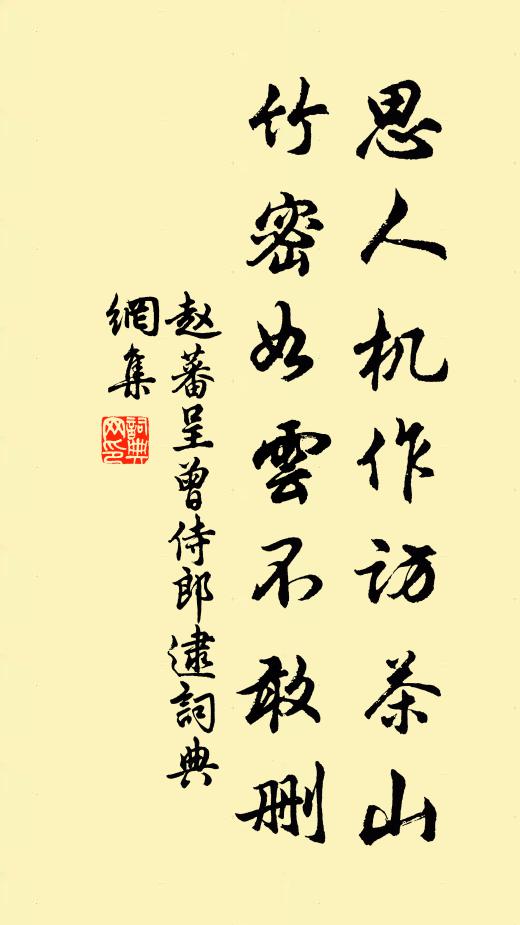 思人机作訪茶山
竹密如雲不敢删
赵蕃呈曾侍郎逮詞典
網集
詞典
网印